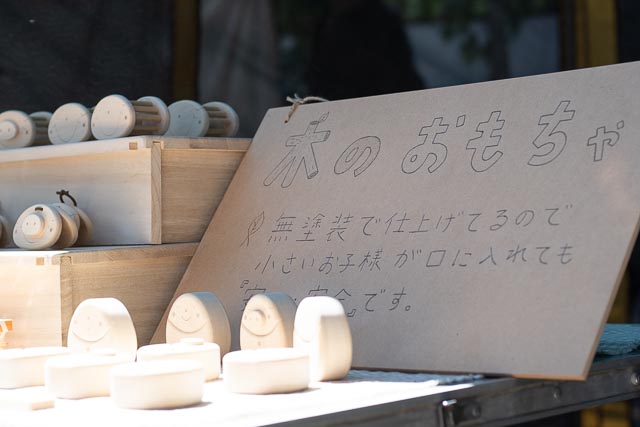 木のおもちゃ
無塗装で仕上げてるので
小さいお子様が口に入れても
』です。